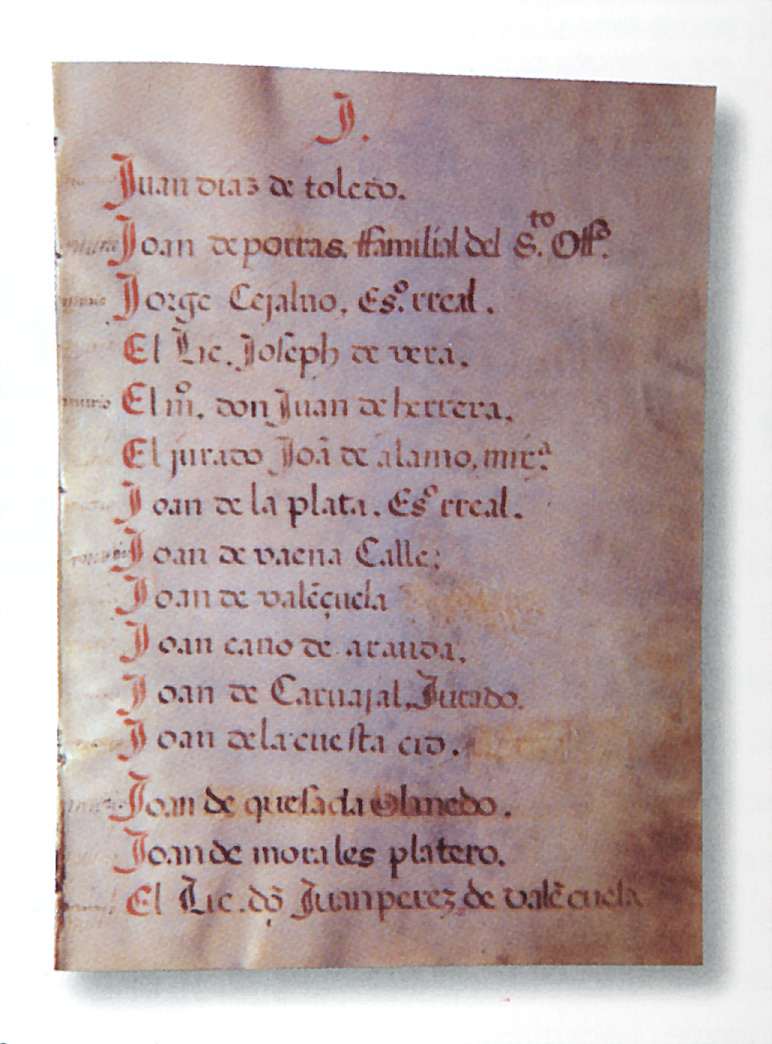 J.
Juan diaz de toledo.
Joan de porras. ffamilial del S.to Off.o
murio Jorge Cejaluo. Es.o rreal.
El Lic. Joseph de vera.
murio El m.o don Juan de herrera.
El jurado Joã de alamo. mer.
Joan de la plata. Es.o rreal.
Joan de vaena Calle:
Joan de valẽçuela
Joan cano de aranda.
Joan de Caruajal, Jurado.
Joan de la cuesta cid.
Joan de quesada Olmedo.
Joan de morales platero.
El Lic. dõ Juan perez de valẽçuela